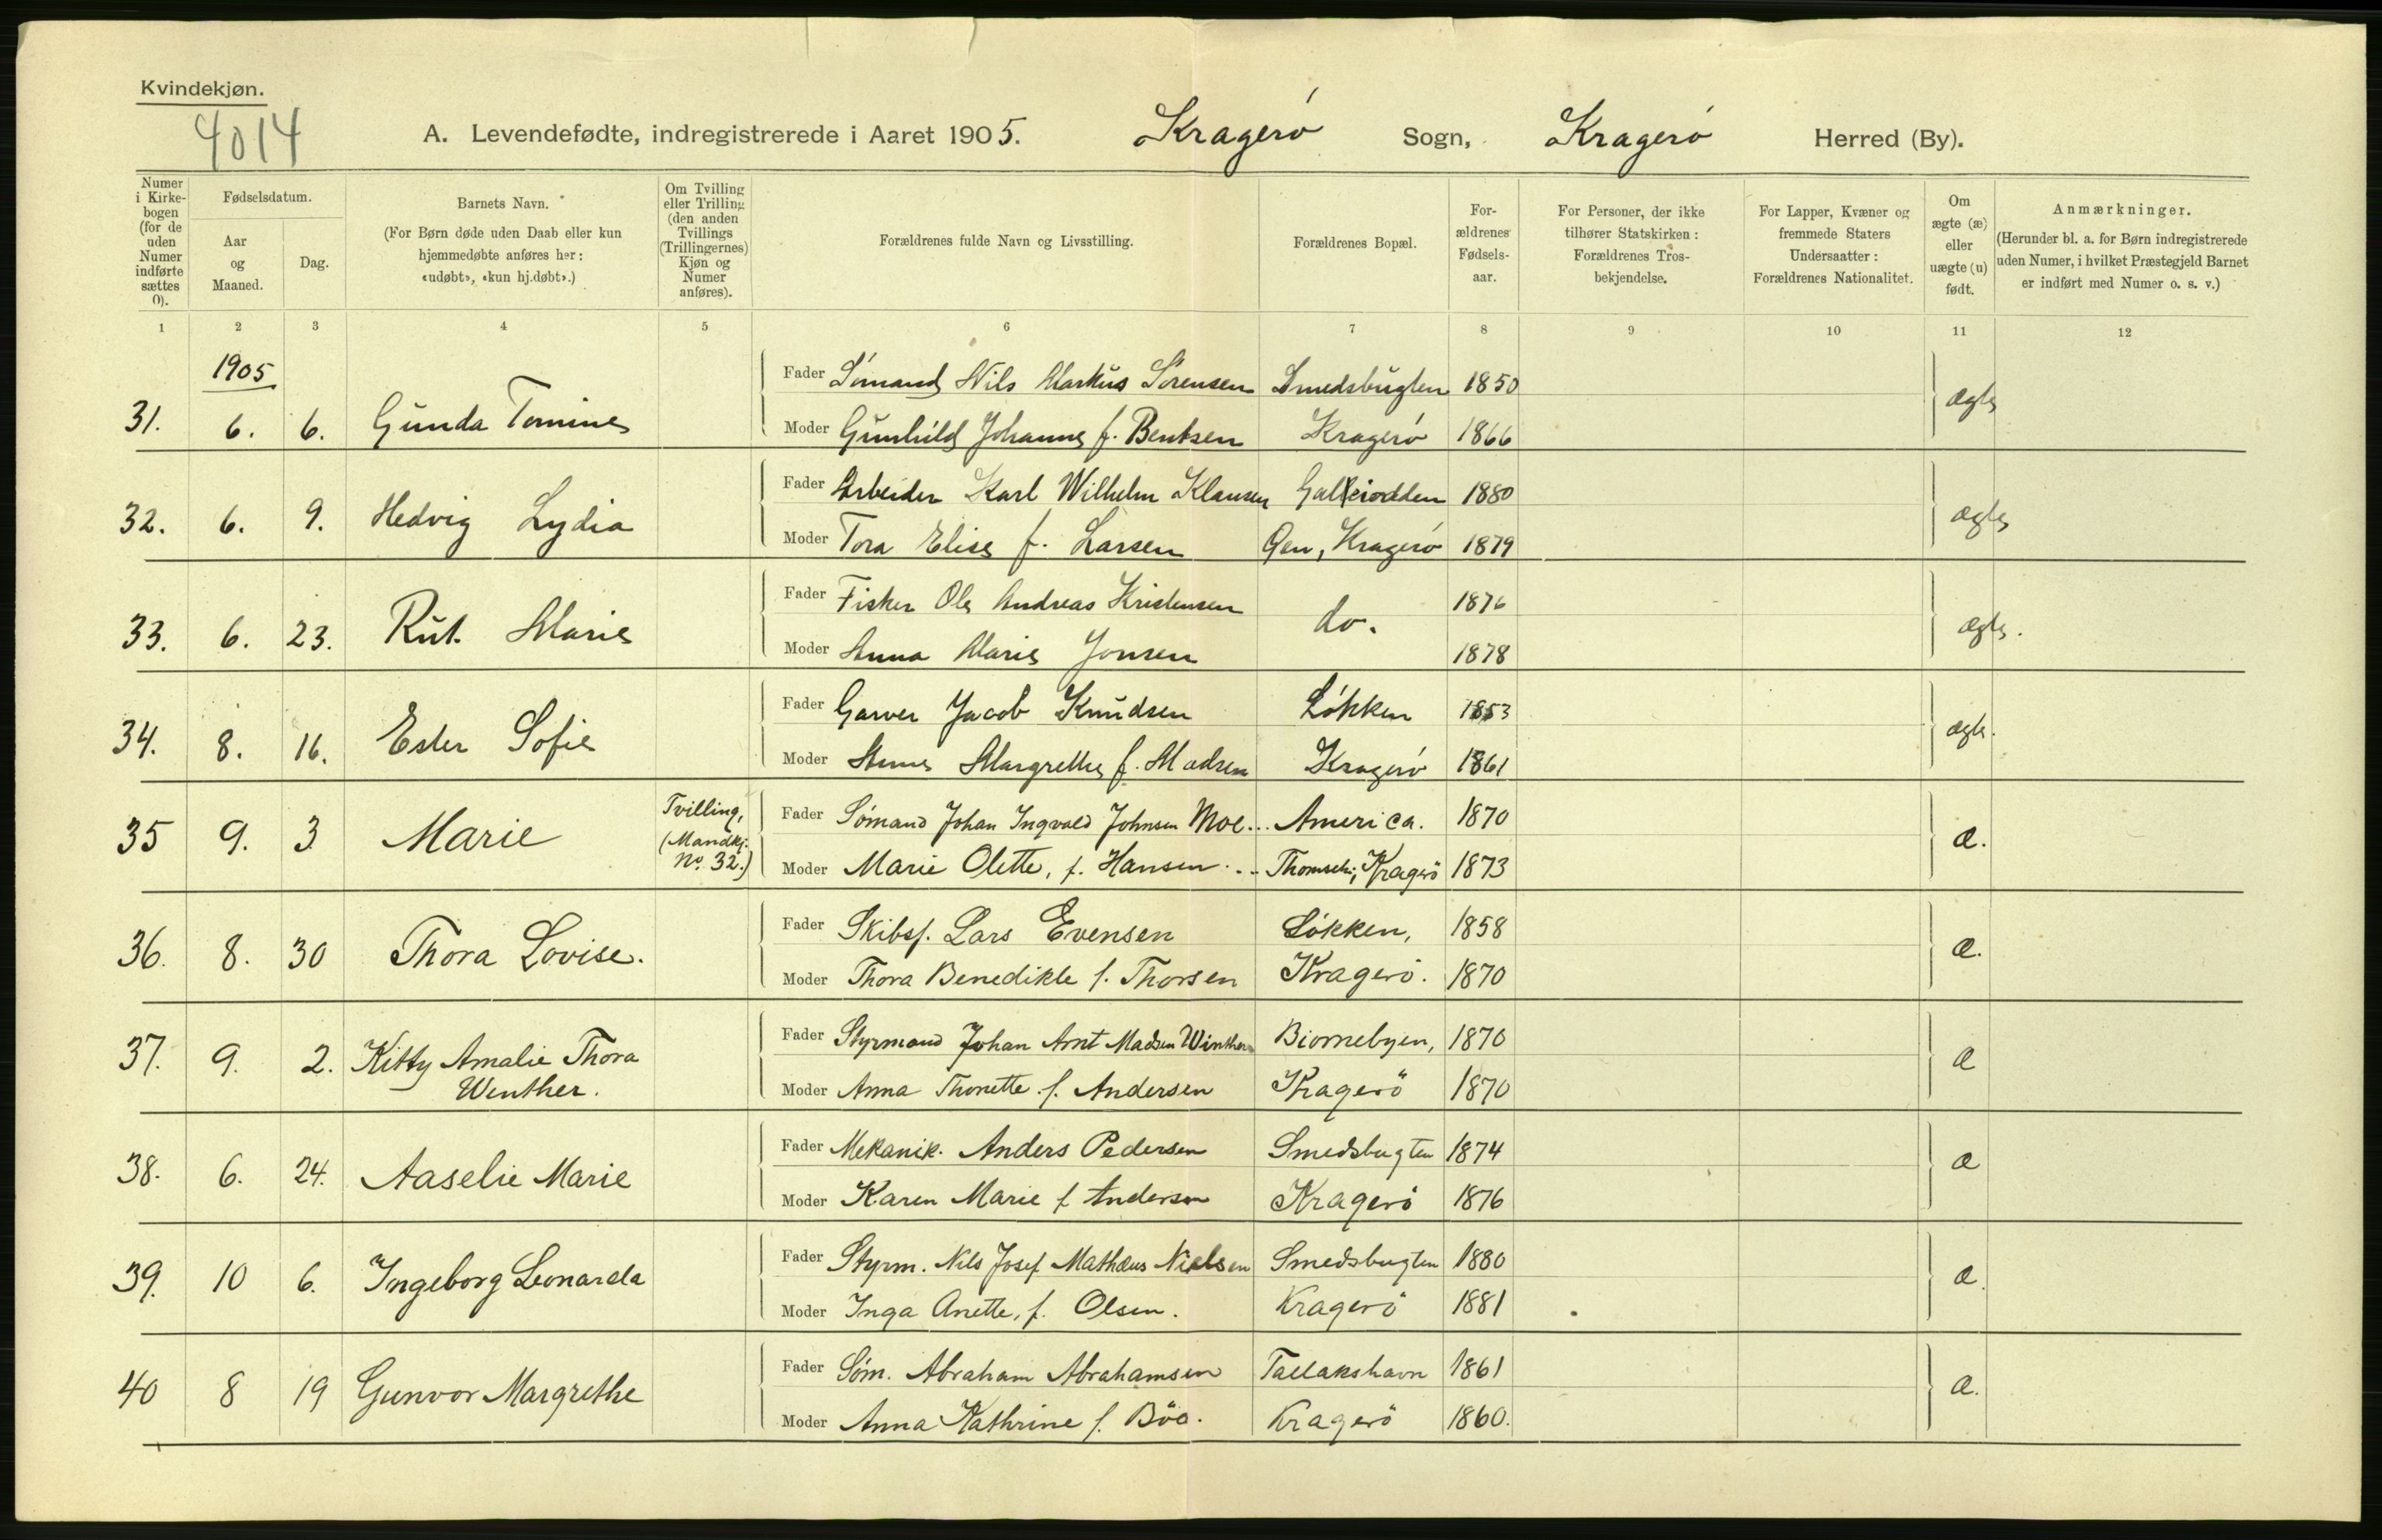 Kvindekjøn.
4014
A. Levendefødte, indregistrerede i Aaret 1905. Kragerø Sogn, Kragerø Herred (By).
Numer i Kirke-bogen (for de uden Numer indførte sættes 0).
Fødselsdatum.
Aar og Maaned.
Dag.
Barnets Navn.
(For Børn døde uden Daab eller kun hjemmedøbte anføres her: «udøbt», «kun hj.døbt».)
Om Tvilling eller Trilling (den anden Tvillings (Trillingernes) Kjøn og Numer anføres).
Forældrenes fulde Navn og Livsstilling.
Forældrenes Bopæl.
For-ældrenes Fødsels-aar.
For Personer, der ikke tilhører Statskirken: Forældrenes Tros-bekjendelse.
For Lapper, Kvæner og fremmede Staters Undersaatter: Forældrenes Nationalitet.
Om ægte (æ) eller uægte (u) født.
Anmærkninger.
(Herunder bl. a. for Børn indregistrerede uden Numer, i hvilket Præstegjeld Barnet er indført med Numer o. s. v.)
1 2 3 4 5 6 7 8 9 10 11 12
1905
Fader Sømand Nils Markus Sørensen Smedsbugten 1850
31. 6. 6. Gunda Tomine ægte
Moder Gunhild Johanne f. Bentsen Kragerø 1866
Fader Arbeider Karl Wilhelm Klausen Galeiodden 1880
32. 6. 9. Hedvig Lydia ægte
Moder Tora Elise f. Larsen Øen, Kragerø 1879
Fader Fisker Ole Andreas Kristensen 1876
33. 6. 23. Rut Marie do. ægte.
Moder Anna Marie Jonsen 1878
Fader Garver Jacob Knudsen Løkken 1853
34. 8. 16. Ester Sofie ægte.
Moder Anne Margrethe f. Madsen Kragerø 1861
Tvilling,
Fader Sømand Johan Ingvald Johnsen Moe... America. 1870
35 9. 3 Marie (Mandkj. æ.
No. 32.)
Moder Marie Olette, f. Hansen... Kragerø 1873
Fader Skibsf. Lars Evensen Løkken, 1858
36. 8. 30 Thora Lovise. æ.
Moder Thora Benedikte f. Thorsen Kragerø. 1870
Fader Styrmand Johan Arnt Madsen Winther Biornebyen, 1870
37. 9. 2. Kitty Amalie Thora æ
Winther.
Moder Anna Thonette f. Andersen Kragerø 1870
Fader Mekanik. Anders Pedersen Smedsbugten 1874
38. 6. 24. Aaselie Marie æ
Moder Karen Marie f Andersen Kragerø 1876
Fader Styrm. Nils Josef Mathæus Nielsen Smedsbugten 1880
39. 10 6. Ingeborg Leonarda æ.
Moder Inga Anette, f. Olsen. Kragerø 1881
Fader Søm. Abraham Abrahamsen Tallakshavn 1861
40 8 19 Gunvor Margrethe æ.
Moder Anna Kathrine f. Böe. Kragerö 1860.